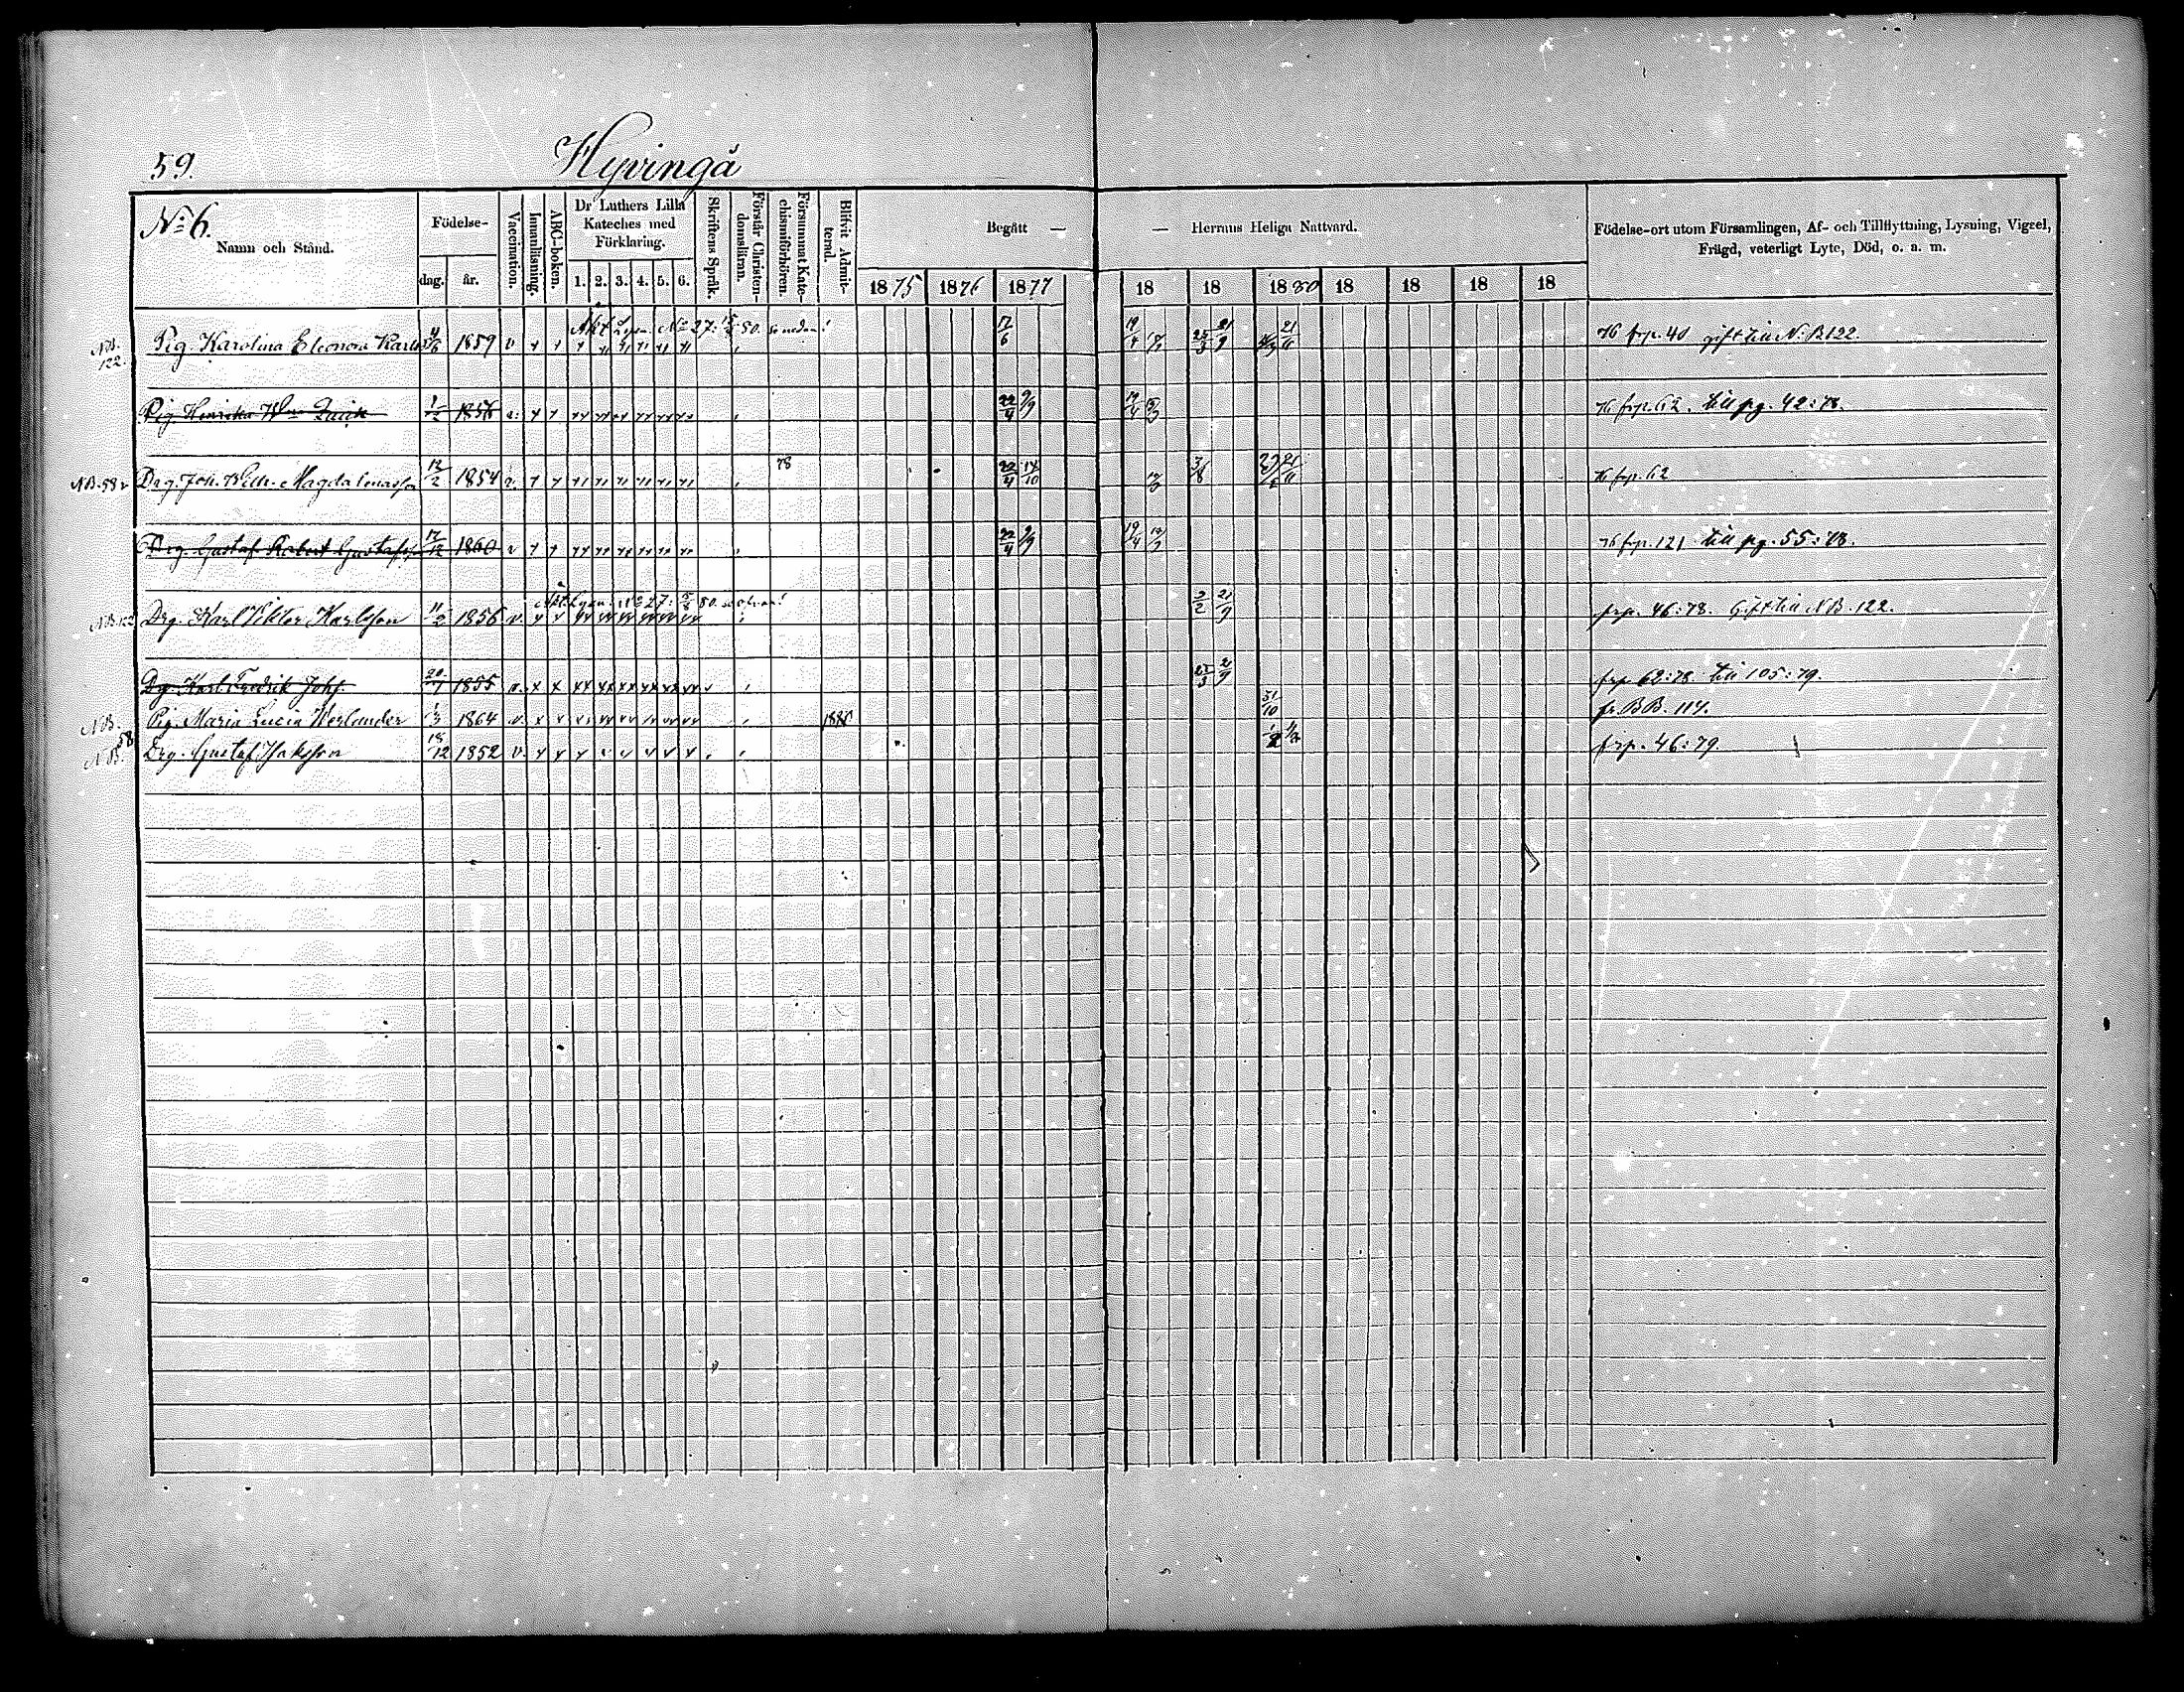 59.
Hyvingå
No 6.
Namn och Stånd.
Födelse-
dag. år.
Vaccination.
Innanläsning.
ABC-boken.
Dr Luthers Lilla
Kateches med
Förklaring.
1. 2. 3. 4. 5. 6.
Skriftens Språk.
Förstår Christen-
domsläran.
Försummat Kate-
chismiförhören.
Blifvit Admit-
terad.
Begått — — Herrans Heliga Nattvard.
1875 1876 1877 18 18 1880 18 18 18 18
Födelse-ort utom Församlingen, Af- och Tillflyttning, Lysning, Vigsel,
Frägd, veterligt Lyte, Död, o. a. m.
NB. 122. Pig. Karolina Eleonora 1859 v 17/6 76 frp. 40 gift till N.B 122.
Pig. Henrika 1856 22/4 9/9 76 frp. 62. till pg. 42:78.
NB. 58 Drg. Joh. Wilh. Magdalenasson 12/2 1854 78 22/4 14/10 21/11 76 frp. 62
Drg. Gustaf Robert Gustafss 17/12 1860 v 22/4 9/9 76 frp. 121 till pg. 55:78.
NB. 122 Drg. Karl Viktor Karlsson 11/2 1856 v. 21/9 frp. 46:78. Gift till NB. 122.
Drg. Karl Fredrik Johs. 20/1 1855 v. 21/9 frp 62:78 till 105:79.
NB. Pig. Maria Lucia 1/3 1864 v. 1880 31/10 fr. BB. 117.
NB. 58 Drg. Gustaf Isaksson 18/12 1852 v. frp. 46:79.